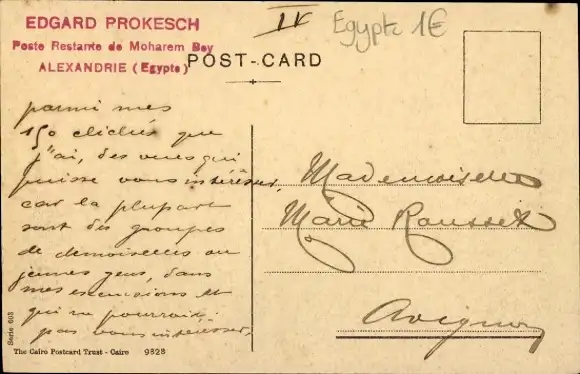 EDGARD PROKESCH
Poste Restante de Moharem Bey
ALEXANDRIE (Egypte)
IV
Egypte 1€
POST-CARD
parmi mes
150 clichés que
j'ai, des vues qui
puisse vous intéresser,
car la plupart
sont des groupes
de demoiselles ou
jeunes gens, dans
mes excursions et
qui ne pourrait
pas vous intéresser,
Mademoiselle
Marie Rousset
Avignon
Serie 603
The Cairo Postcard Trust - Cairo 9828